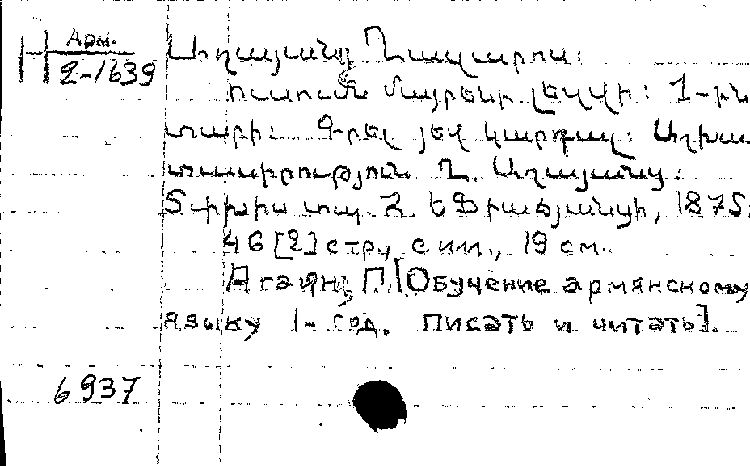 Арм.
2-1639
Աղայանց Ղազարոս։
ուսումն մայրենի լեզվի։ 1-ին
տարի։ Գրել յեվ կարդալ։ Աշխա
տասիրություն Ղ. Աղայանց։
Տփխիս տպ. Հ. Էֆիաճյանցի, 1875։
46 [2] стр, с илл., 19 см.
Агаян, П. [Обучение армянскому
языку 1-год. Писать и читать].
6937